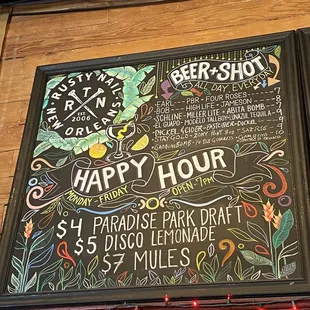 RUSTY NAIL
EST.
2006
R T N
NEW ORLEANS
BEER + SHOT
ALL DAY, EVERYDAY
EARL - PBR + FOUR ROSES - 7
BOB - HIGH LIFE + JAMESON - 8
SCHLINE - MILLER LITE + ABITA BOMB - 7
EL GUAPO - MODELO TALLBOY + LUNAZUL TEQUILA - 9
PICKEL
STAY GOLD
HAPPY HOUR
MONDAY - FRIDAY
OPEN - 7PM
$4 PARADISE PARK DRAFT
$5 DISCO LEMONADE
$7 MULES